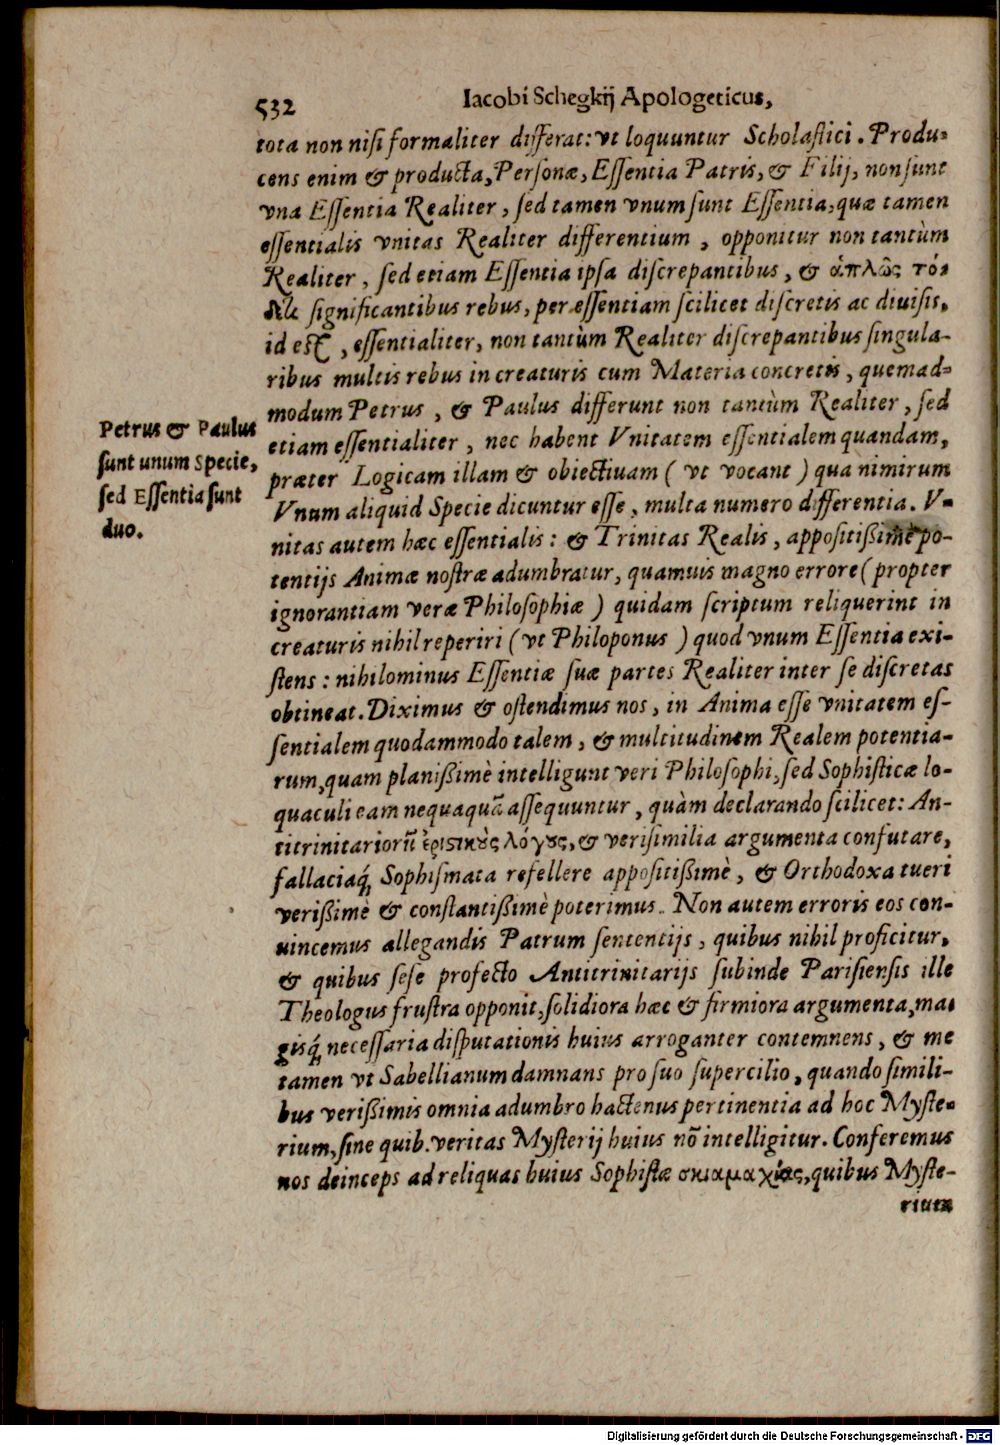 532 Iacobi Schegkij Apologeticus,
tota non nisi formaliter differat: vt loquuntur Scholastici. Produ-
cens enim & producta, Personæ, Essentia Patris, & Filij, non sunt
vna Essentia Realiter, sed tamen vnum sunt Essentia, quæ tamen
essentialis vnitas Realiter differentium, opponitur non tantùm
Realiter, sed etiam Essentia ipsa discrepantibus, & ἁπλῶς τό-
δε significantibus rebus, per essentiam scilicet discretis ac diuisis,
id est, essentialiter, non tantùm Realiter discrepantibus singula-
ribus multis rebus in creaturis cum Materia concretis, quemad-
modum Petrus, & Paulus differunt non tantùm Realiter, sed
etiam essentialiter, nec habent Vnitatem essentialem quandam,
præter Logicam illam & obiectiuam ( vt vocant ) qua nimirum
Vnum aliquid Specie dicuntur esse, multa numero differentia. V-
nitas autem hæc essentialis: & Trinitas Realis, appositißimè po-
tentijs Animæ nostræ adumbratur, quamuis magno errore (propter
ignorantiam veræ Philosophiæ ) quidam scriptum reliquerint in
creaturis nihil reperiri ( vt Philoponus ) quod vnum Essentia exi-
stens: nihilominus Essentiæ suæ partes Realiter inter se discretas
obtineat. Diximus & ostendimus nos, in Anima esse vnitatem es-
sentialem quodammodo talem, & multitudinem Realem potentia-
rum, quam planißimè intelligunt veri Philosophi, sed Sophisticæ lo-
quaculi eam nequaquã assequuntur, quàm declarando scilicet: An-
titrinitariorũ ἐριστικοὺς λόγους, & verisimilia argumenta confutare,
fallaciaq́; Sophismata refellere appositißimè, & Orthodoxa tueri
verißimè & constantißimè poterimus. Non autem erroris eos con-
uincemus allegandis Patrum sententijs, quibus nihil proficitur,
& quibus sese profecto Antitrinitarijs subinde Parisiensis ille
Theologus frustra opponit, solidiora hæc & firmiora argumenta, ma-
gisq́; necessaria disputationis huius arroganter contemnens, & me
tamen vt Sabellianum damnans pro suo supercilio, quando simili-
bus verißimis omnia adumbro hactenus pertinentia ad hoc Myste-
rium, sine quib. veritas Mysterij huius nõ intelligitur. Conferemus
nos deinceps ad reliquas huius Sophistæ σκιαμαχίας, quibus Myste-
rium
Petrus & Paulus
sunt unum Specie,
sed Essentia sunt
duo.
Digitalisierung gefördert durch die Deutsche Forschungsgemeinschaft - DFG